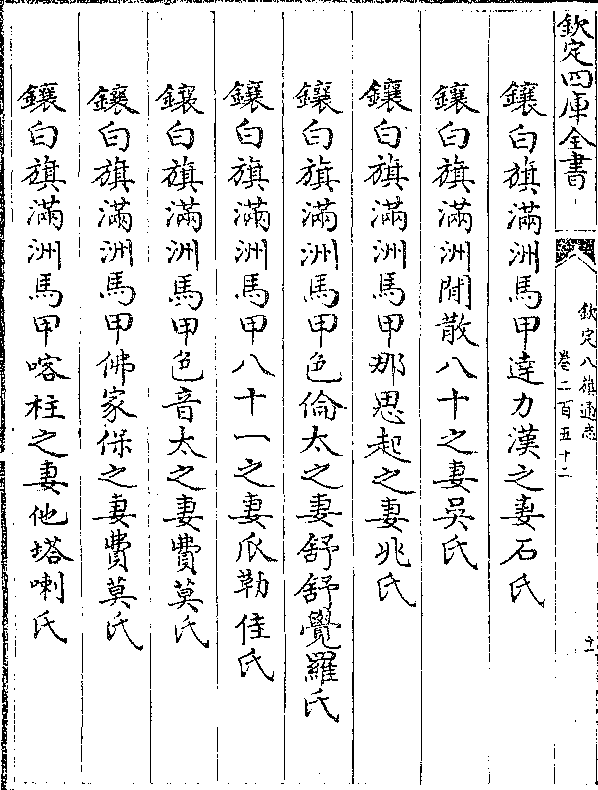 欽定四庫全書
欽定八旗通志
卷二百五十二
十一
鑲白旗滿洲馬甲達力漢之妻石氏
鑲白旗滿洲閒散八十之妻吳氏
鑲白旗滿洲馬甲那思起之妻兆氏
鑲白旗滿洲馬甲色倫太之妻舒舒覺羅氏
鑲白旗滿洲馬甲八十一之妻瓜勒佳氏
鑲白旗滿洲馬甲色音太之妻費莫氏
鑲白旗滿洲馬甲佛家保之妻費莫氏
鑲白旗滿洲馬甲喀柱之妻他塔喇氏